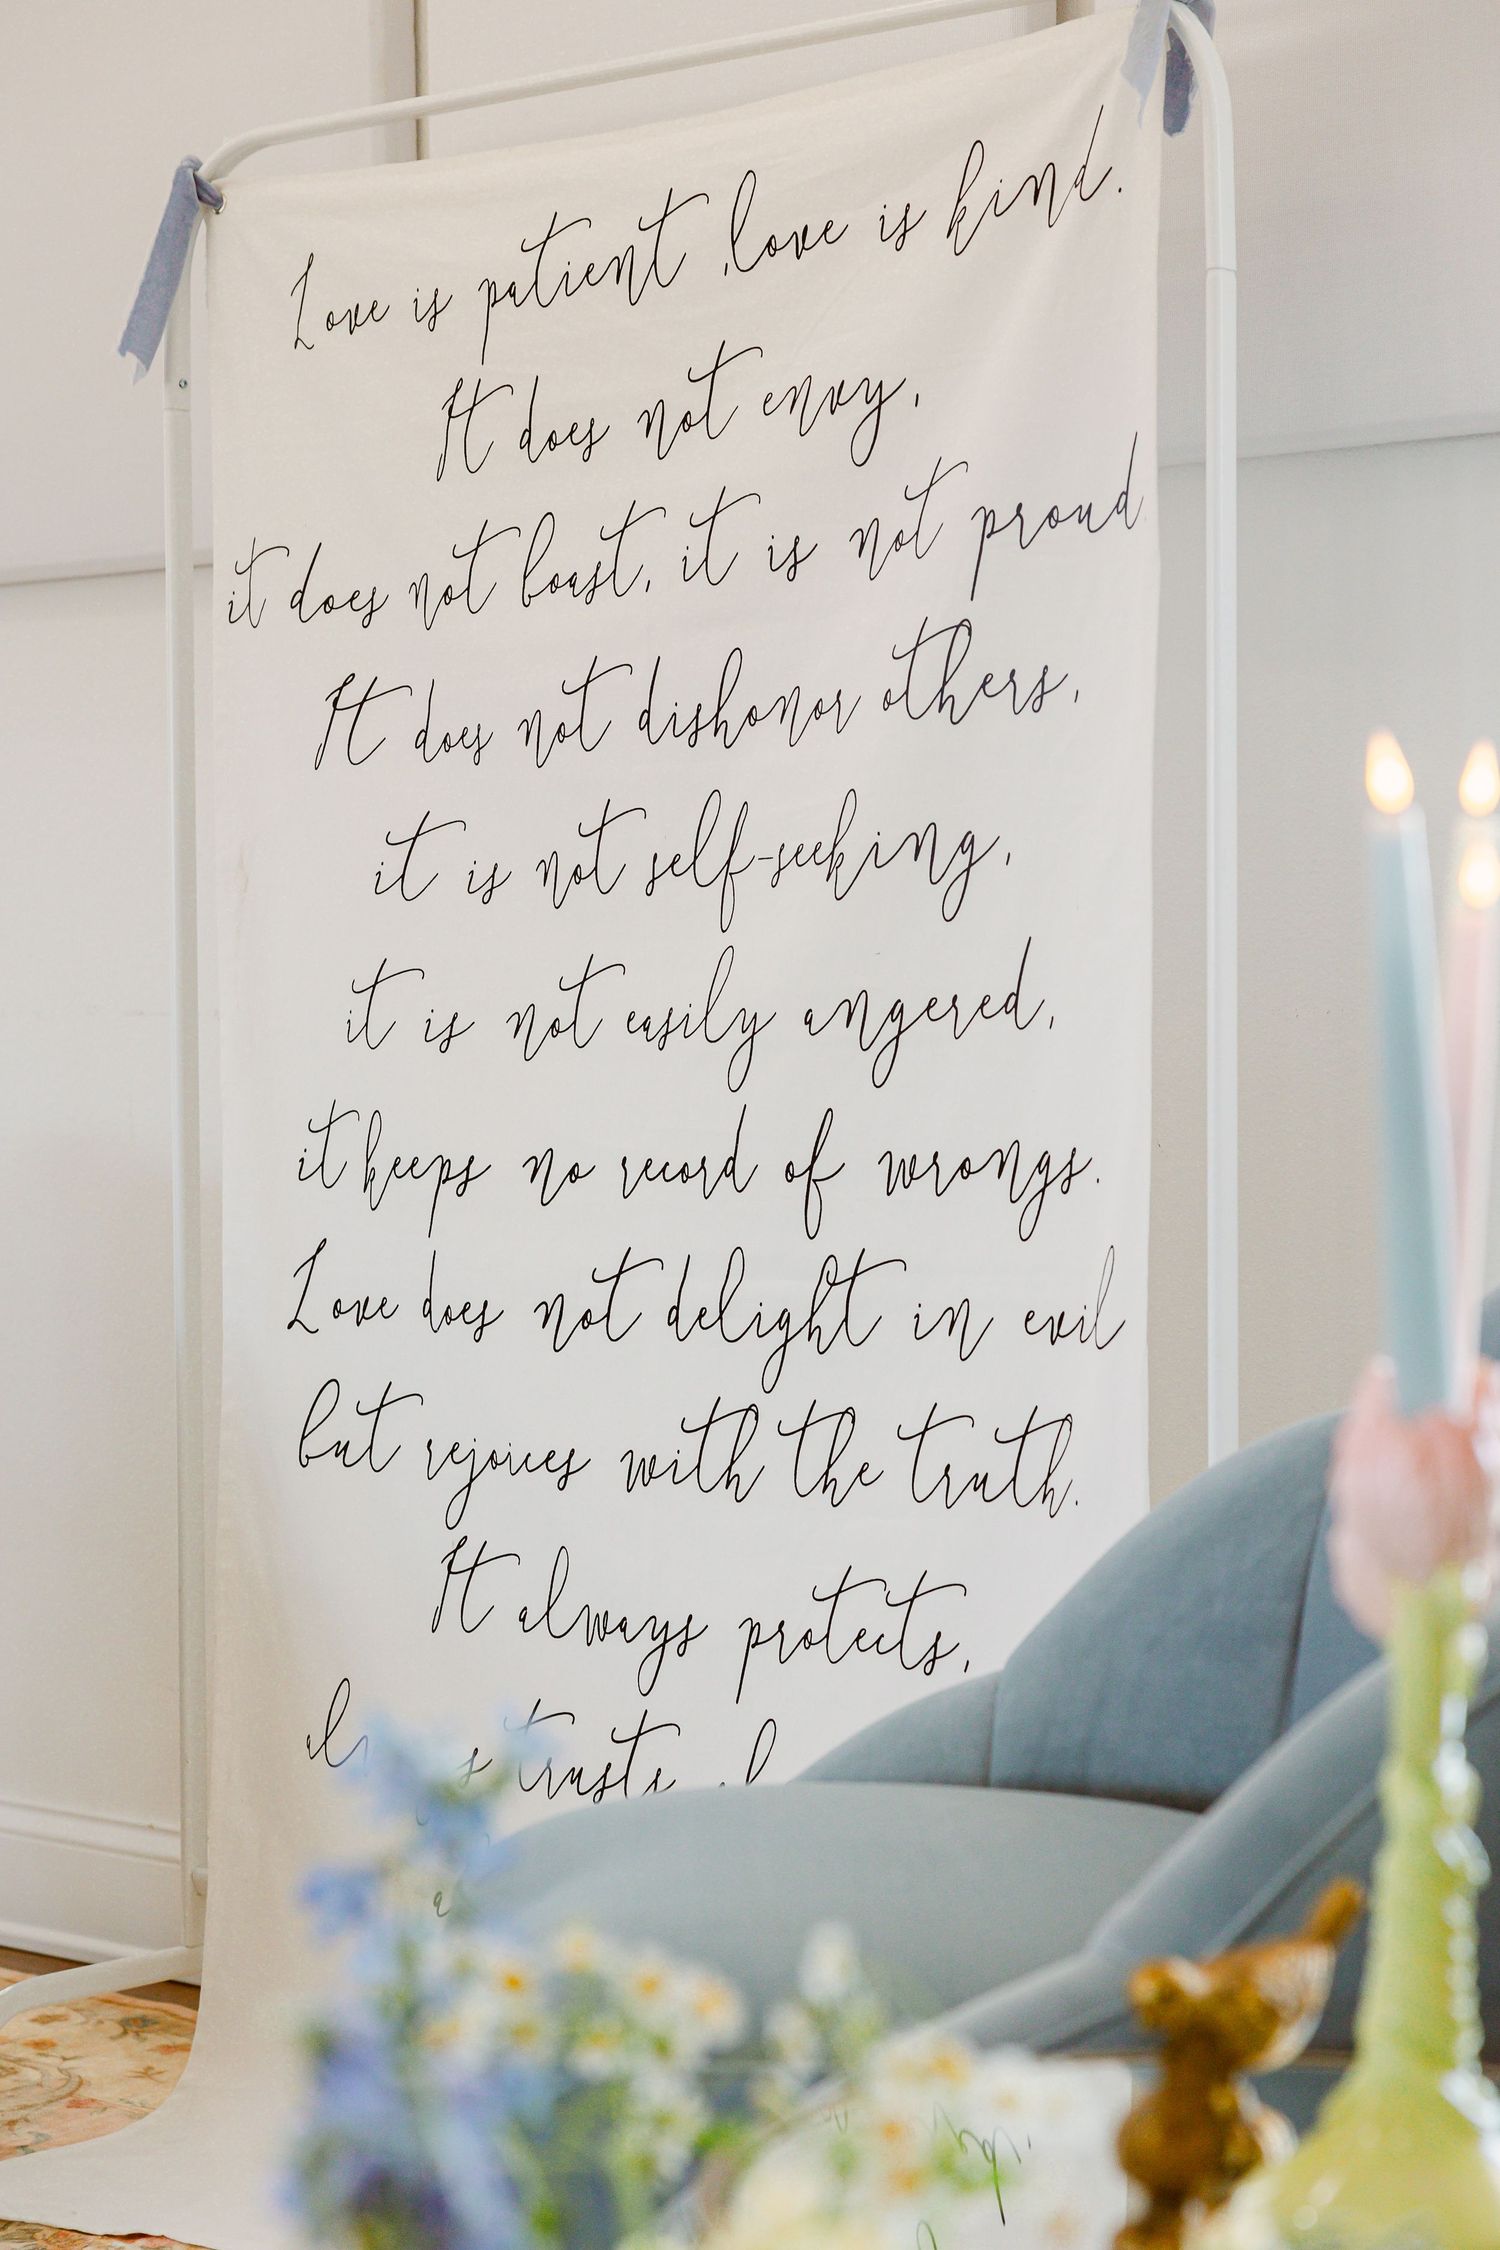 Love is patient, love is kind.
It does not envy,
it does not boast, it is not proud
It does not dishonor others,
it is not self-seeking,
it is not easily angered,
it keeps no record of wrongs.
Love does not delight in evil
but rejoices with the truth.
It always protects,
trusts